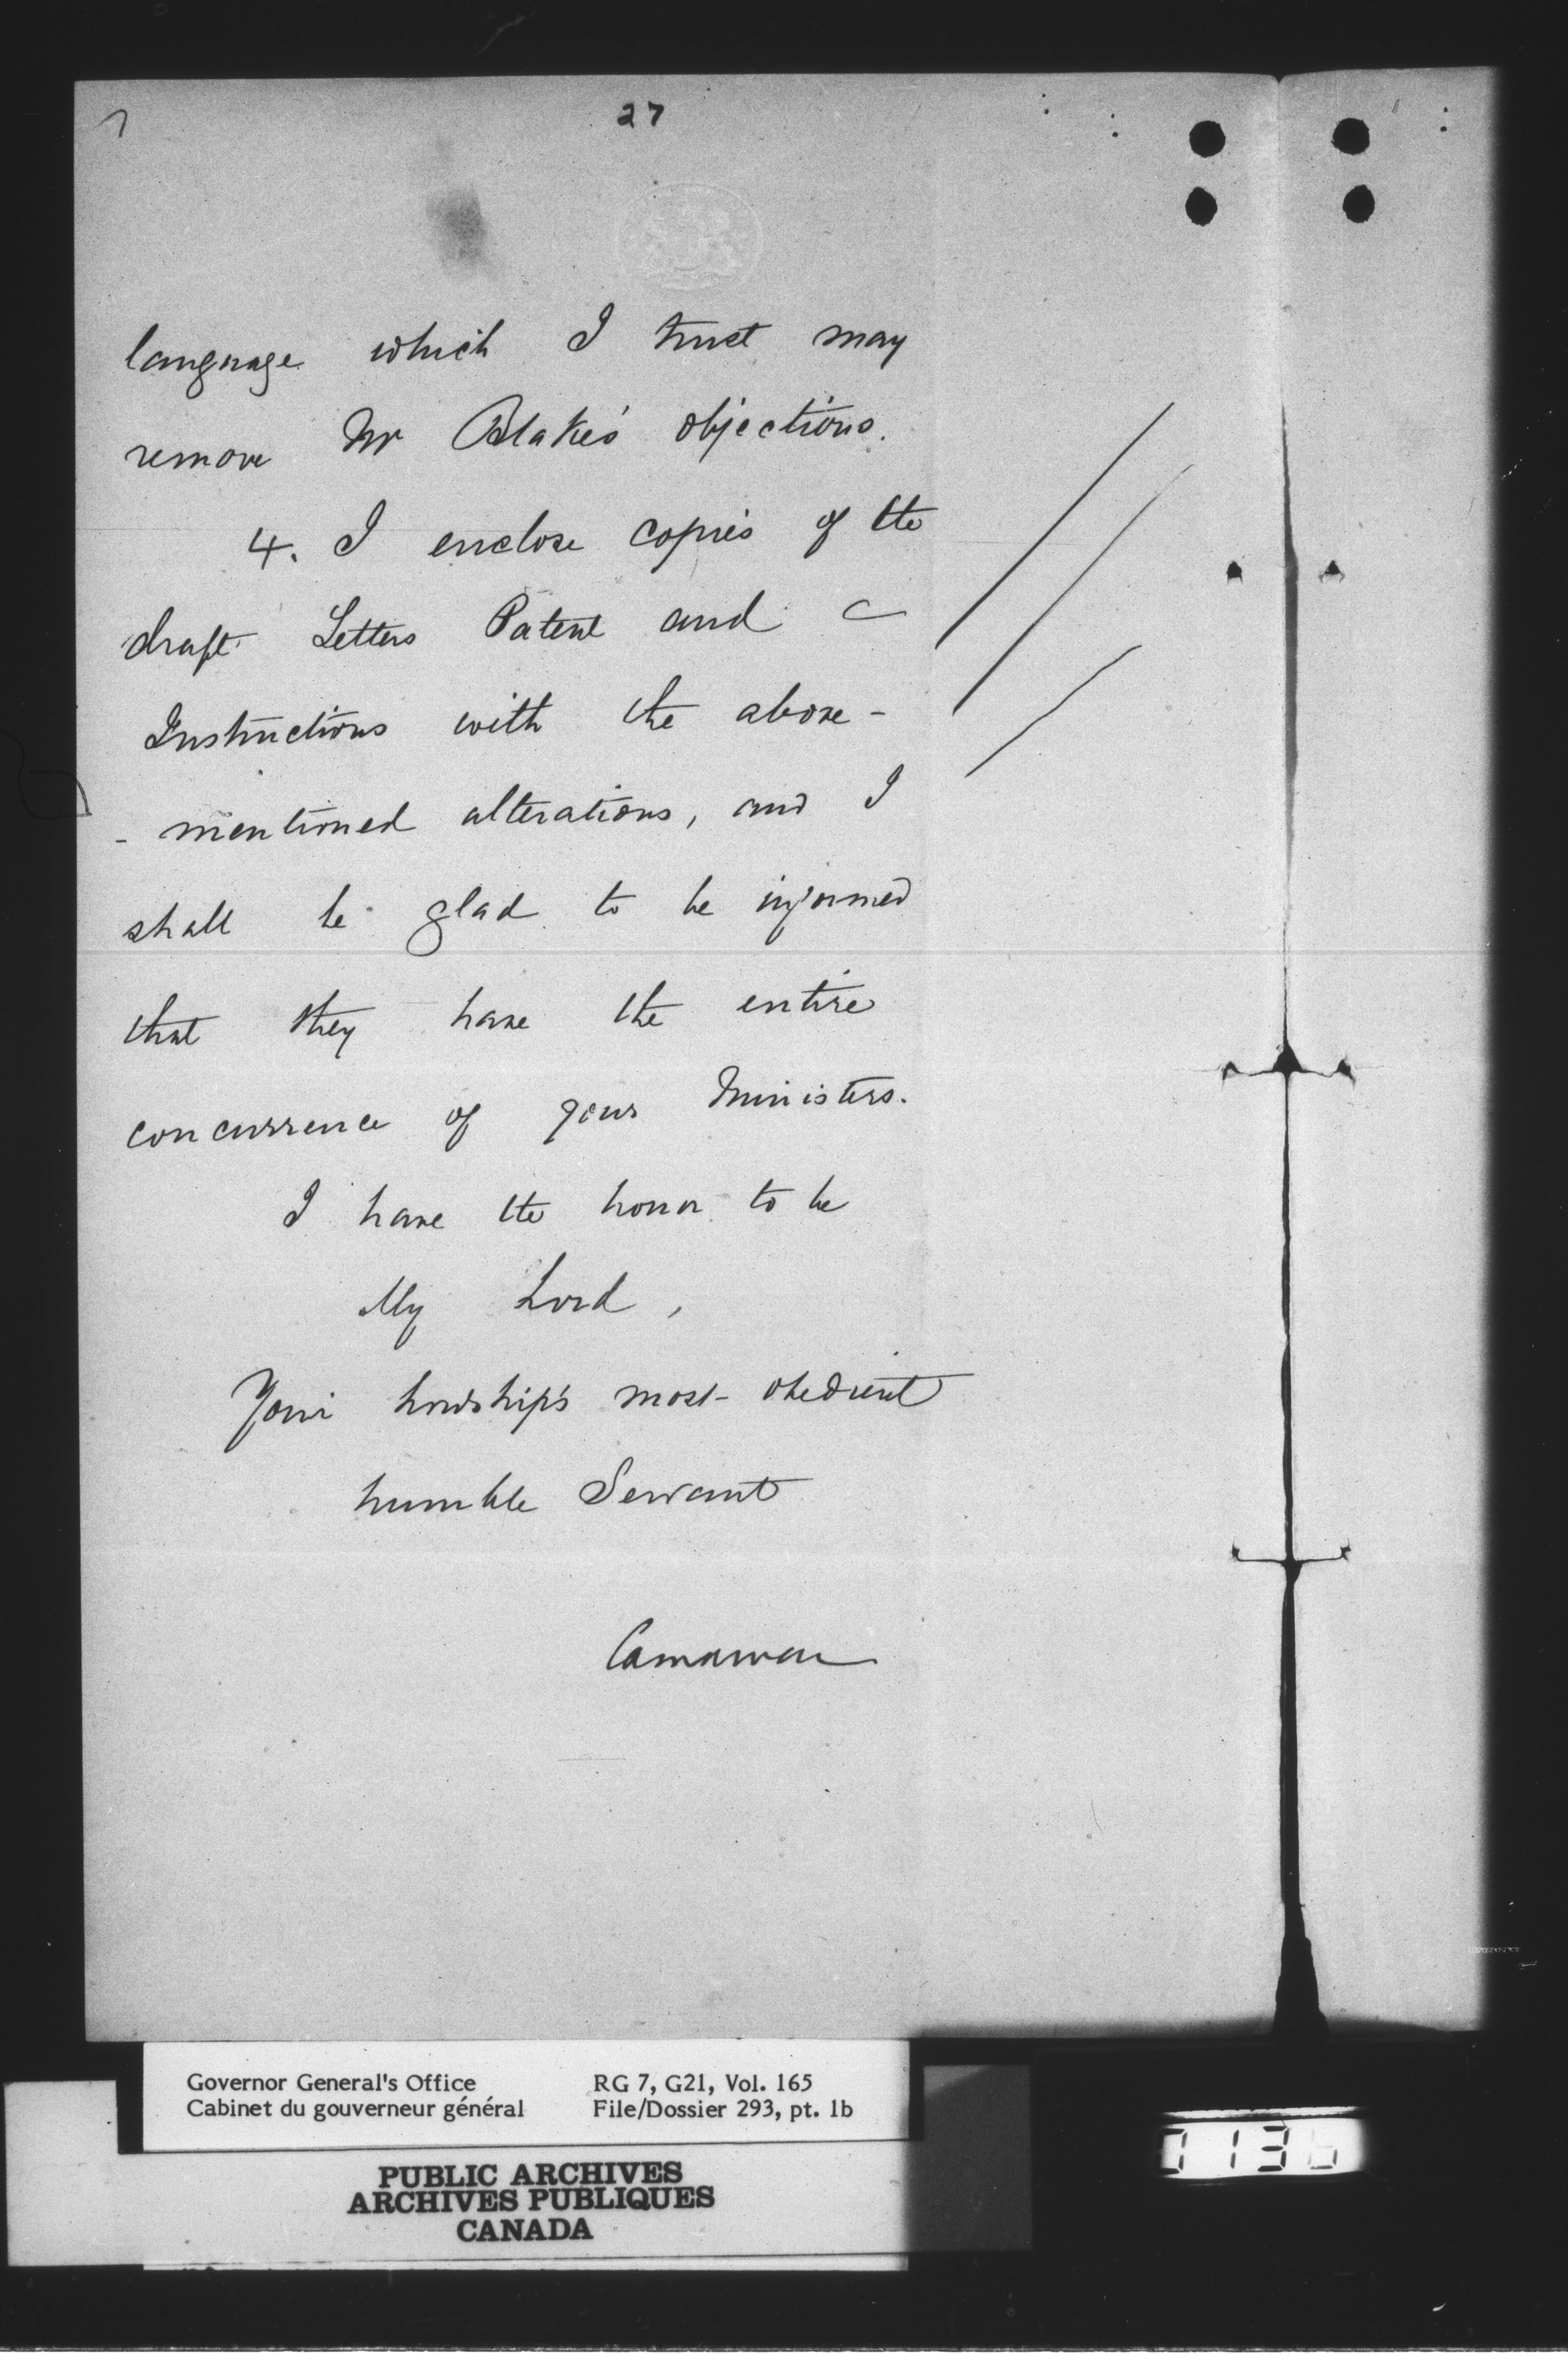 27
language which I trust may
remove Mr Blake's objections.
4. I enclose copies of the
draft Letters Patent and
Instructions with the above-
- mentioned alterations, and I
shall be glad to be informed
that they have the entire
concurrence of your Ministers.
I have the honor to be
My Lord,
Your Lordship's most obedient
humble Servant
Carnarvon
Governor General's Office
Cabinet du gouverneur général
RG 7, G21, Vol. 165
File/Dossier 293, pt. 1b
PUBLIC ARCHIVES
ARCHIVES PUBLIQUES
CANADA